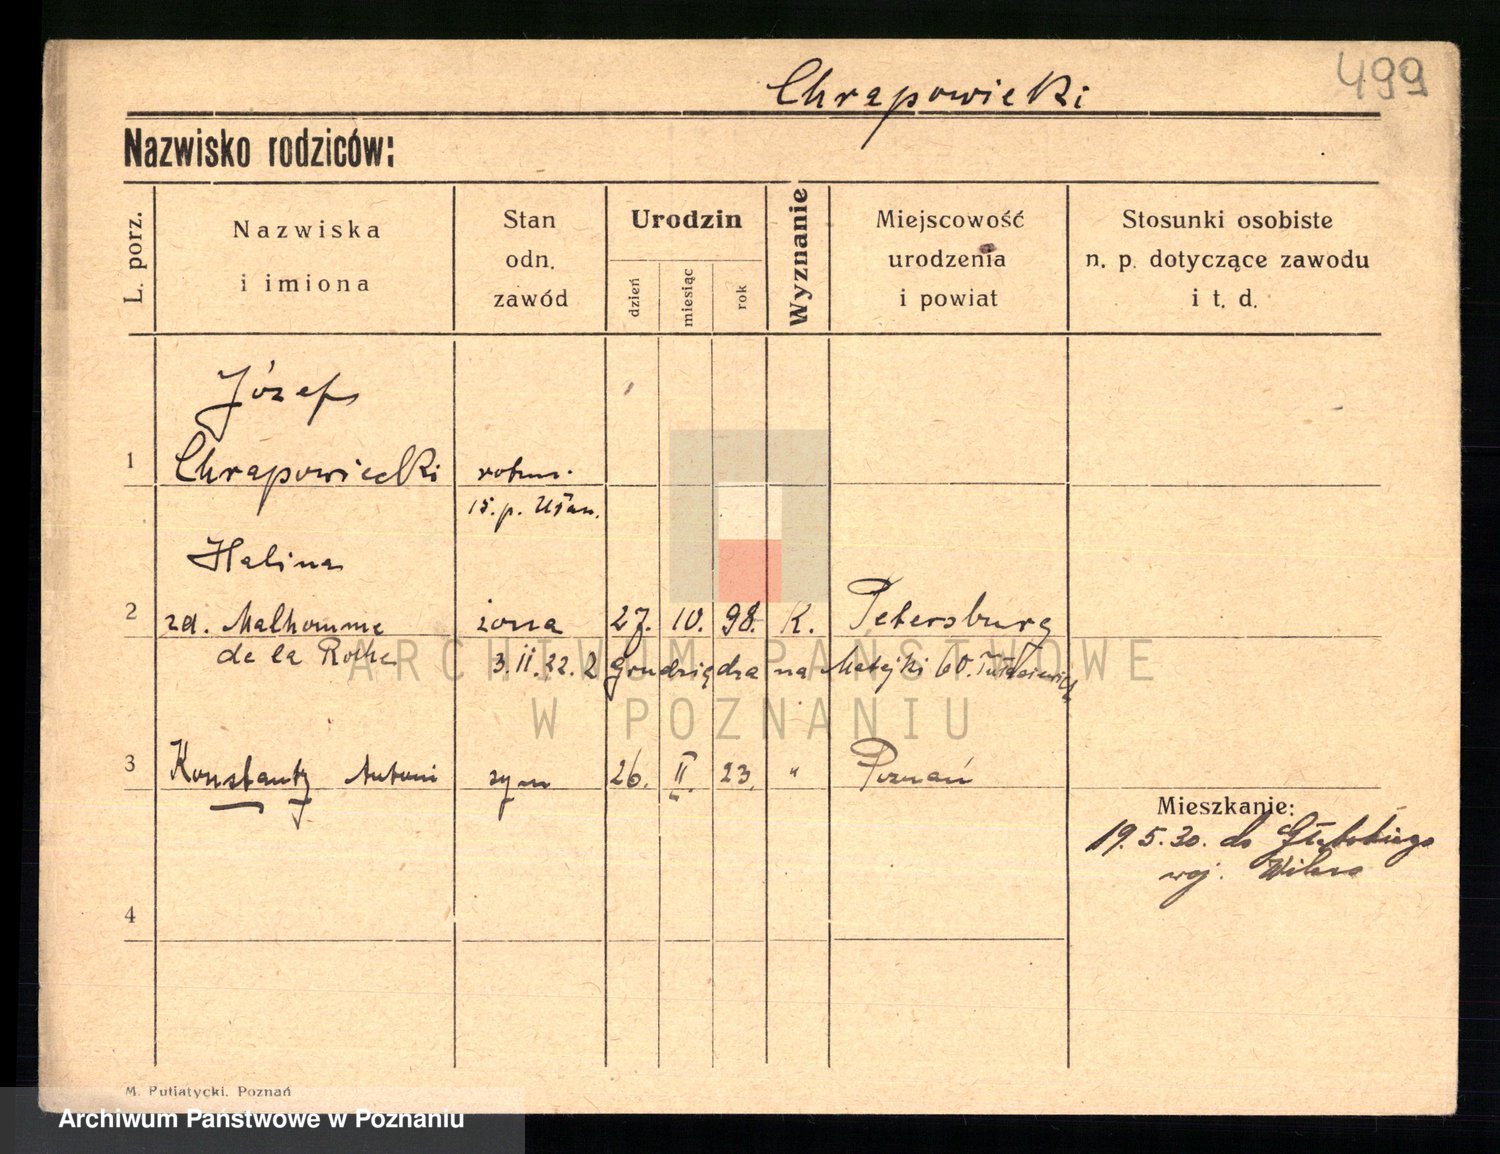 499
Chrapowicki
Nazwisko rodziców:
L. porz.
Nazwiska
i imiona
Stan
odn.
zawód
Urodzin
dzień
miesiąc
rok
Wyznanie
Miejscowość
urodzenia
i powiat
Stosunki osobiste
n. p. dotyczące zawodu
i t. d.
Józef
1 Chrapowicki rotm.
15. p. Ułan.
Halina
2 zd. Malhomme żona 27. 10. 98. K. Petersburg
de la Roche 3.II.22. z Grudziądza na Matejki 60.
3 Konstanty Antoni syn 26. II. 23. " Poznań
Mieszkanie:
19.5.30. do Głębokiego
woj. Wilno
4
M. Putiatycki, Poznań
ARCHIWUM PAŃSTWOWE
W POZNANIU
Archiwum Państwowe w Poznaniu